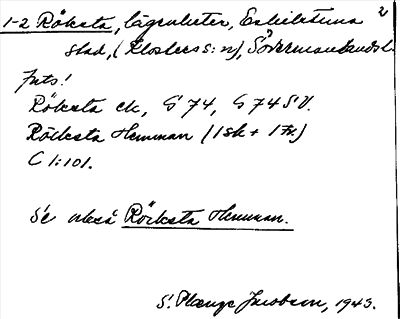 2
1-2 Röksta, lägenheter, Eskilstuna
stad, (Klosters s:n), Södermanlands l.
Röksta ek, G 74, G 74 SV.
Röksta Hemman (1 sk + 1 Fr.)
C 1:101.
Se också Röksta Hemman.
S. Jacobson, 1943.